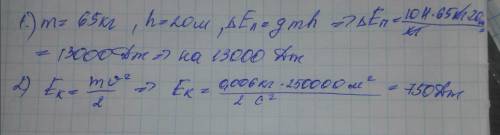 1.) m = 65кг, h = 20м, ΔEп = gmh => ΔEп = 10Н·65кг·20м / кг
= 13000Дж => на 13000 Дж
2) Eк = mv² / 2 => Eк = 0,006кг·250000м² / 2 с² = 750Дж